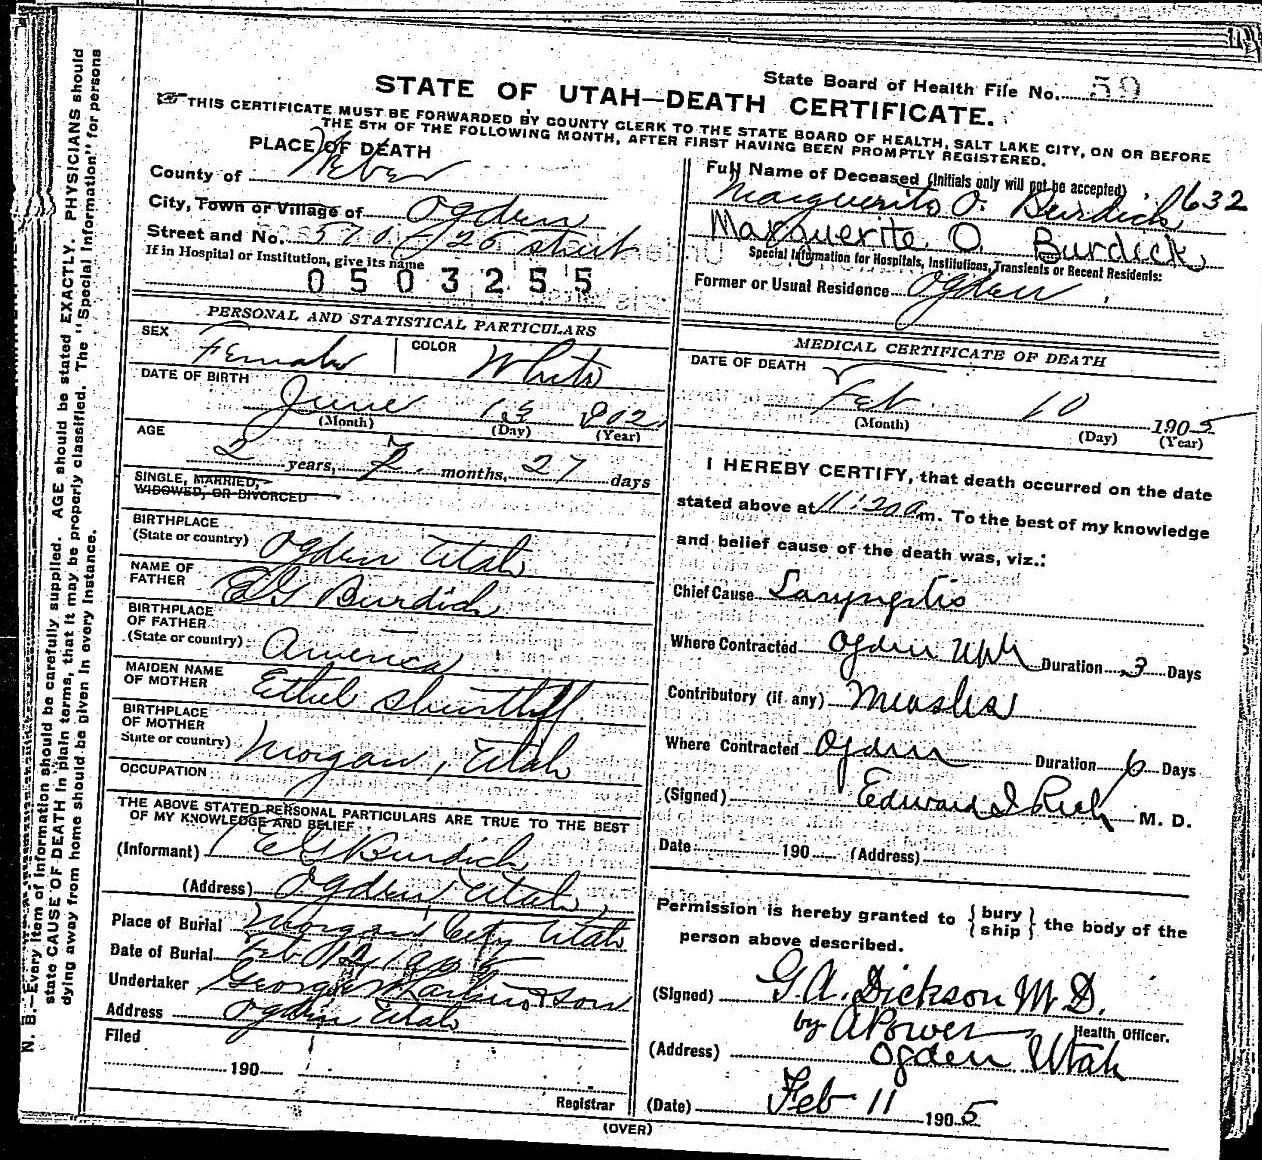 State Board of Health File No. 59
STATE OF UTAH—DEATH CERTIFICATE.
THIS CERTIFICATE MUST BE FORWARDED BY COUNTY CLERK TO THE STATE BOARD OF HEALTH, SALT LAKE CITY, ON OR BEFORE
THE 5TH OF THE FOLLOWING MONTH, AFTER FIRST HAVING BEEN PROMPTLY REGISTERED.
PLACE OF DEATH
County of Weber
City, Town or Village of Ogden
Street and No. 570 26 street
If in Hospital or Institution, give its name
0503255
Full Name of Deceased (Initials only will not be accepted)
Marguerite O. Burdick 632
Marguerite O. Burdick
Special Information for Hospitals, Institutions, Transients or Recent Residents:
Former or Usual Residence Ogden
PERSONAL AND STATISTICAL PARTICULARS
SEX Female COLOR White
DATE OF BIRTH
June 13 1902
(Month) (Day) (Year)
AGE
2 years, 7 months, 27 days
SINGLE, MARRIED,
WIDOWED, OR DIVORCED
BIRTHPLACE
(State or country) Ogden Utah
NAME OF
FATHER E G Burdick
BIRTHPLACE
OF FATHER
(State or country) America
MAIDEN NAME
OF MOTHER Ethel Shurtliff
BIRTHPLACE
OF MOTHER
State or country) Morgan, Utah
OCCUPATION
THE ABOVE STATED PERSONAL PARTICULARS ARE TRUE TO THE BEST
OF MY KNOWLEDGE AND BELIEF
(Informant) E G Burdick
(Address) Ogden Utah
Place of Burial Morgan City Utah
Date of Burial Feb 12 1905
Undertaker George & Son
Address Ogden Utah
Filed
190
Registrar
MEDICAL CERTIFICATE OF DEATH
DATE OF DEATH
Feb. 10 1905
(Month) (Day) (Year)
I HEREBY CERTIFY, that death occurred on the date
stated above at 11:20 a m. To the best of my knowledge
and belief cause of the death was, viz.:
Chief Cause Laryngitis
Where Contracted Ogden Utah Duration 3 Days
Contributory (if any) Measles
Where Contracted Ogden Duration 6 Days
(Signed) Edward I Rich M. D.
Date 190 (Address)
Permission is hereby granted to {bury
ship} the body of the
person above described.
(Signed) G. A. Dickson M. D.
by A Power Health Officer.
(Address) Ogden Utah
(Date) Feb 11 1905
(OVER)
N. B.—Every item of information should be carefully supplied. AGE should be stated EXACTLY. PHYSICIANS should
state CAUSE OF DEATH in plain terms, that it may be properly classified. The "Special Information" for persons
dying away from home should be given in every instance.